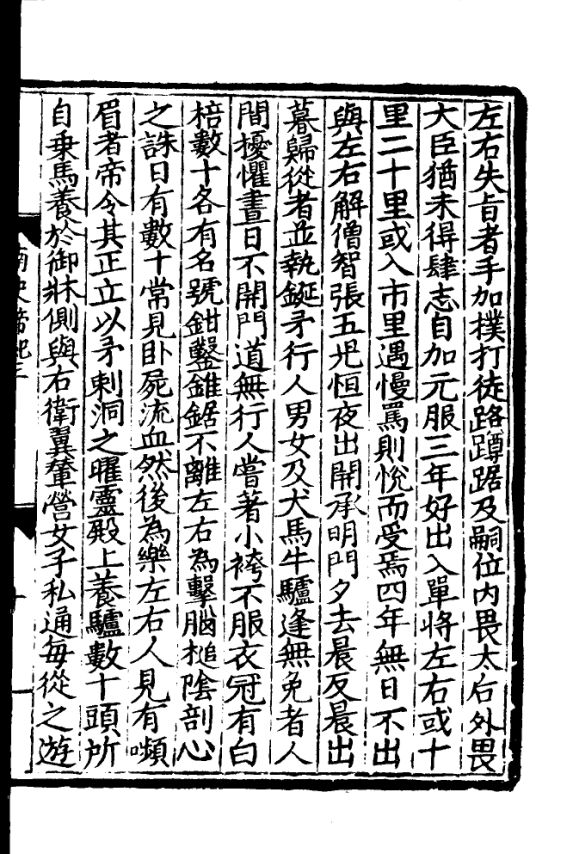 左右失旨者手加撲打徒跣蹲踞及嗣位内畏太后外畏
大臣猶未得肆志自加元服三年好出入單將左右或十
里二十里或入市里遇慢罵則悅而受焉四年無日不出
與左右解僧智張五児恒夜出開承明門夕去晨反晨出
暮歸從者並執鋋矛行人男女及犬馬牛驢逢無免者人
間擾懼晝日不開門道無行人嘗著小袴不服衣冠有白
棓數十各有名號鉗鑿錐鋸不離左右為擊腦槌陰剖心
之誅日有數十常見卧屍流血然後為樂左右人見有嚬
眉者帝令其正立以矛刺洞之曜靈殿上養驢數十頭所
自乗馬養於御牀側與右衛翼輦營女子私通每從之遊
南史帝紀三